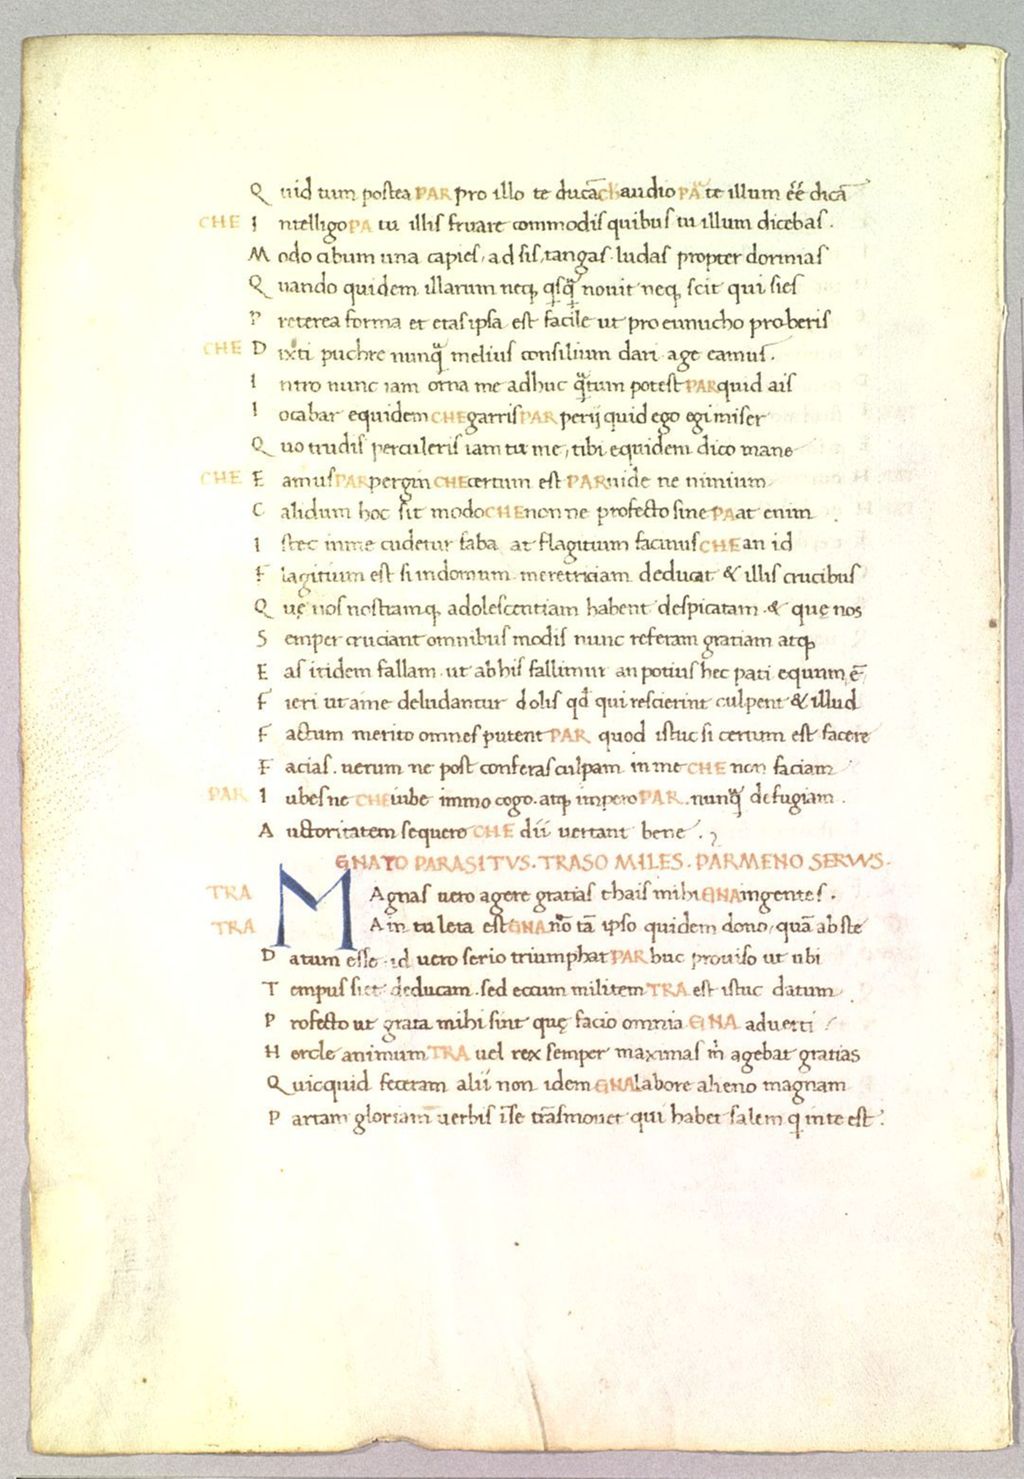 Quid tum postea PAR pro illo te ducā CH audio PĀ te illum eē dicā
CHE Intelligo PA tu illis fruare commodis quibus tu illum dicebas.
Modo cibum una capies, ad sis, tangas. ludas propter dormias
Quando quidem illarum neq; qsq̄ novit neq; scit qui sies
Preterea forma et etas ipsa est facile ut pro eunucho proberis
CHE Dixti puchre nunq̄ melius consilium dari. age eamus.
Intro nunc iam orna me adhuc q̄tum potest PAR quid ais
Iocabar equidem CHE garris PAR perij quid ego egi miser
Quo trudis perculeris iam tu me, tibi equidem dico mane
CHE Eamus PAR pergin CHE certum est PAR uide ne nimium
Calidum hoc sit modo CHE non ne profecto sine PA at enim
Istec in me cudetur faba at flagitium facimus CHE an id
Flagitium est si in domum meretriciam deducar & illis crucibus
Quę nos nostramq; adolescentiam habent despicatam & quę nos
Semper cruciant omnibus modis nunc referam gratiam atq;
Eas itidem fallam ut ab his fallimur an potius hec pati equum ē
Fieri ut a me deludantur dolis qd̄ qui rescierint culpent & illud
Factum merito omnes putent PAR quod istuc si certum est facere
Facias. uerum ne post conferas culpam in me CHE non faciam
PAR Iubes ne CHE iube immo cogo. atq; impero PAR. nunq̄ defugiam.
Auctoritatem sequere CHE dii uertant bene.
GNATO PARASITVS. TRASO MILES. PARMENO SERVVS.
TRA MAgnas uero agere gratias thais mihi GNA ingentes.
TRA Ain tu leta est GNA nō tā ipso quidem dono, quā abs te
Datum esse. id uero serio triumphat PAR huc prouiso ut ubi
Tempus siet deducam. sed eccum militem TRA est istuc datum
Profecto ut grata mihi sint quę facio omnia GNA aduerti
Hercle animum TRA uel rex semper maximas m̄ agebat gratias
Quicquid feceram alii non idem GNA labore alieno magnam
Partam gloriam uerbis īse trāsmouet qui habet salem q in te est.